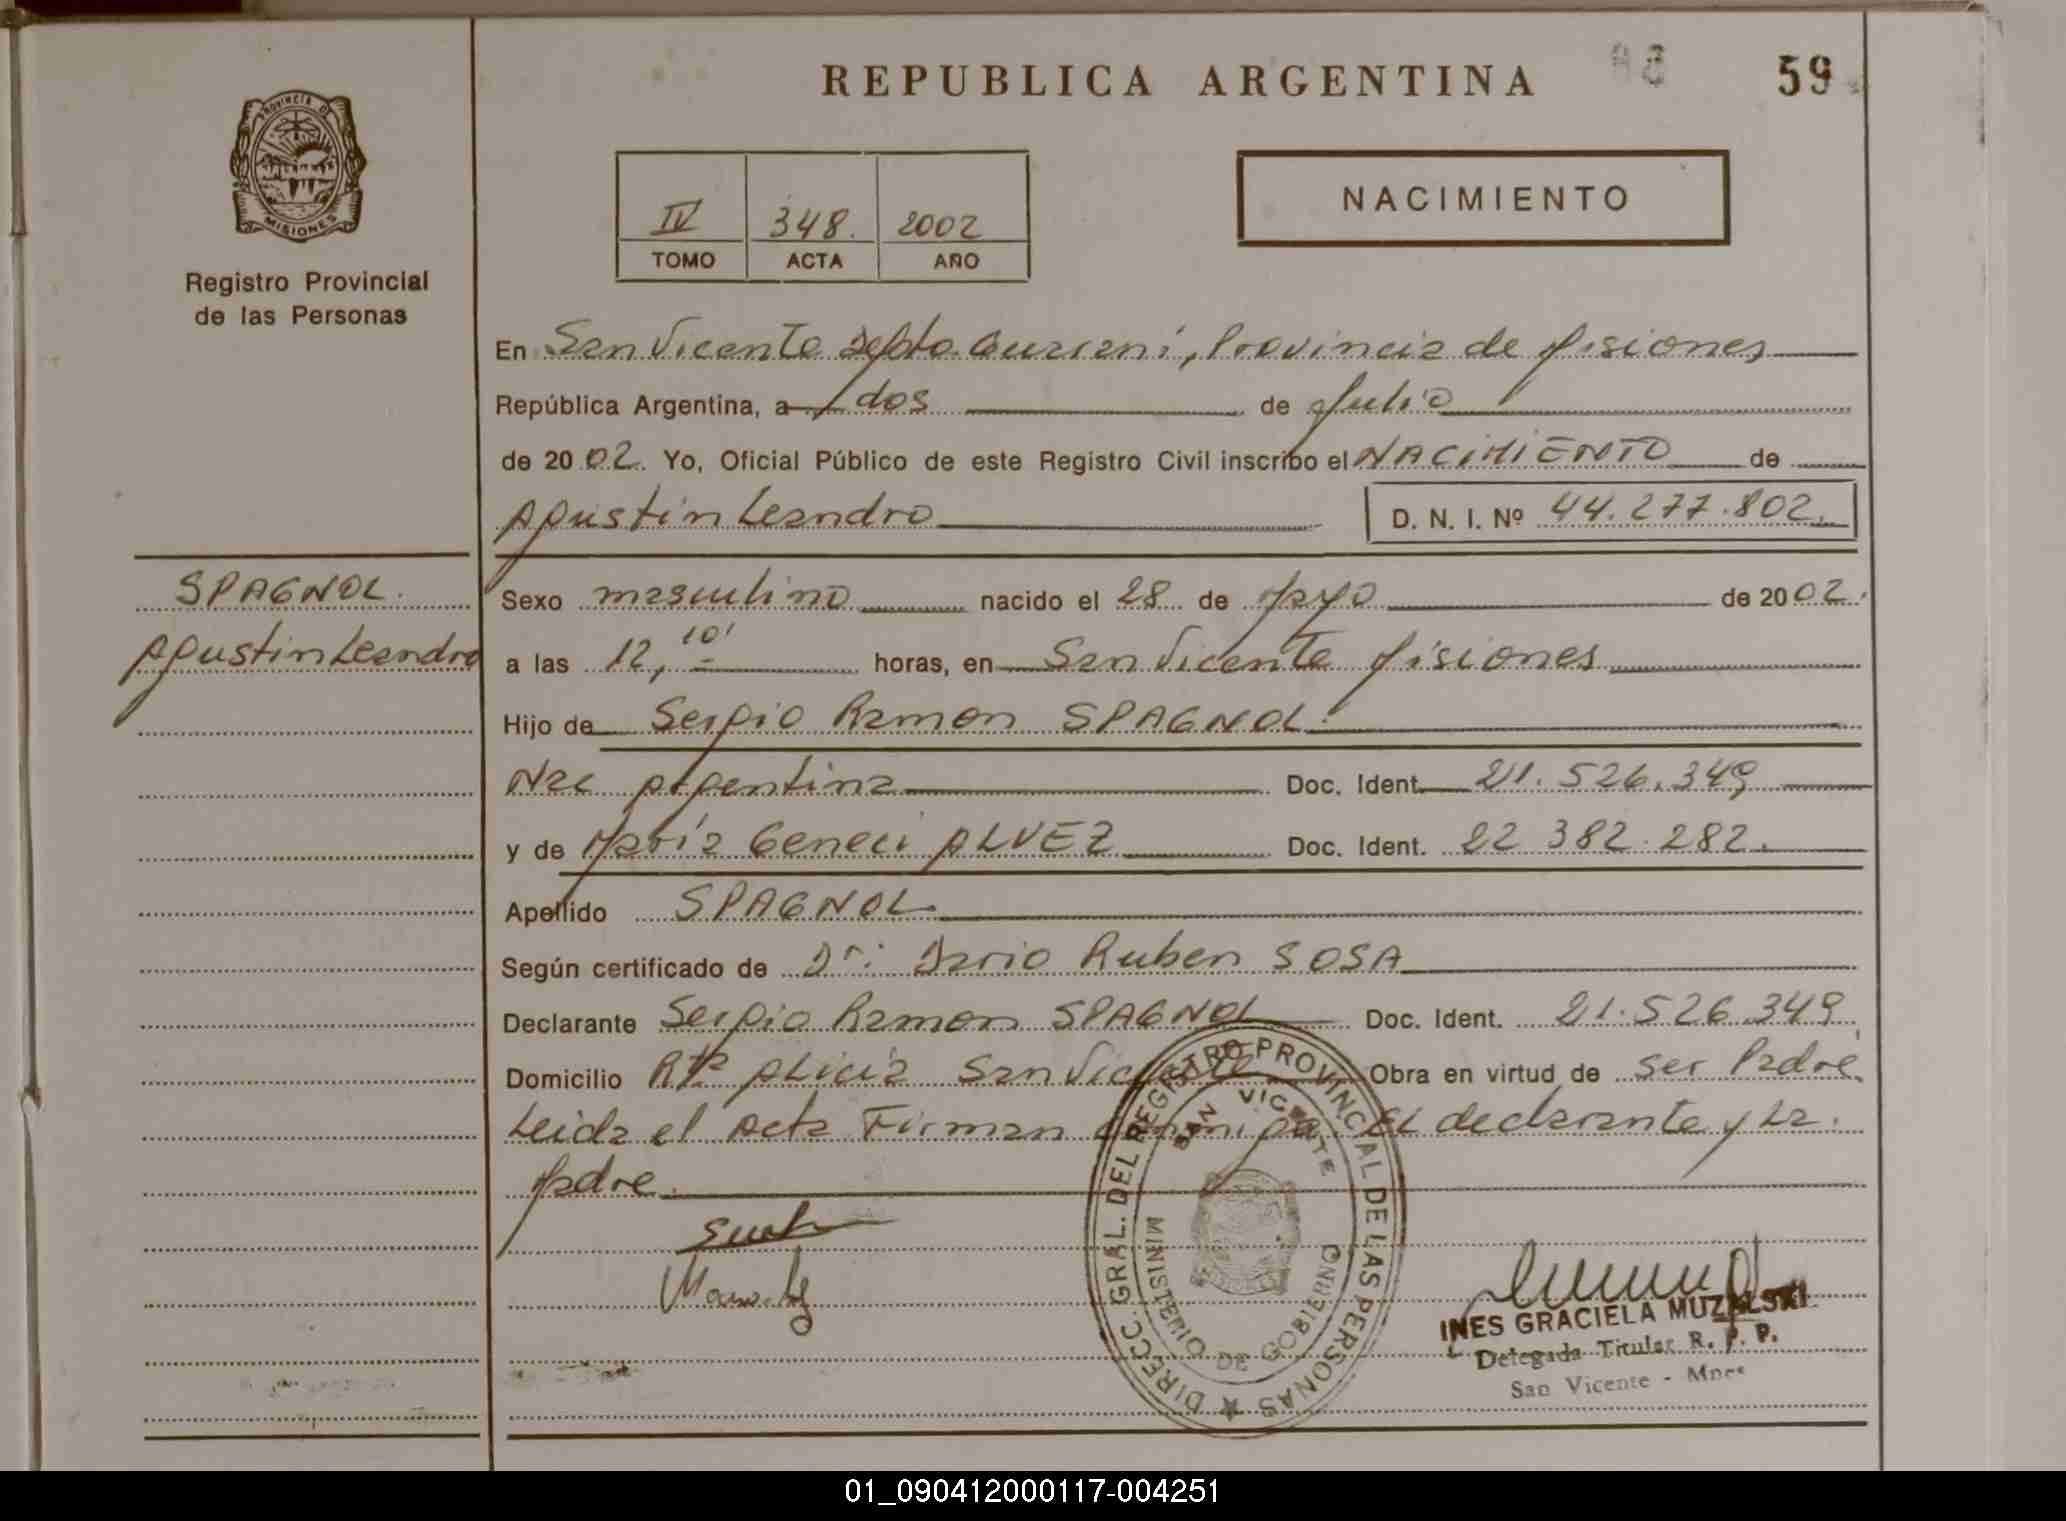 REPUBLICA ARGENTINA
59
PROVINCIA DE
MISIONES
Registro Provincial
de las Personas
IV 348. 2002
TOMO ACTA AÑO
NACIMIENTO
En San Vicente Depto Guarani, Provincia de Misiones
República Argentina, a dos de Julio
de 2002. Yo, Oficial Público de este Registro Civil inscribo el NACIMIENTO de
Agustin Leandro D. N. I. Nº 44.277.802.
SPAGNOL.
Agustin Leandro
Sexo masculino nacido el 28 de Mayo de 2002.
a las 12,10' horas, en San Vicente Misiones
Hijo de Sergio Ramon SPAGNOL.
Nac Argentina Doc. Ident. 21.526.349
y de María Geneci ALVEZ Doc. Ident. 22 382.282.
Apellido SPAGNOL
Según certificado de Dr: Dario Ruben SOSA
Declarante Sergio Ramon SPAGNOL Doc. Ident. 21.526.349
Domicilio Rta ALicia San Vicente Obra en virtud de ser Padre
Leida el Acta Firman conmigo El declarante y La
Madre.
DIRECC. GRAL. DEL REGISTRO PROVINCIAL DE LAS PERSONAS
SAN VICENTE
MINISTERIO DE GOBIERNO
INES GRACIELA MUZALSKI
Delegada Titular R. P. P.
San Vicente - Mnes
01_090412000117-004251